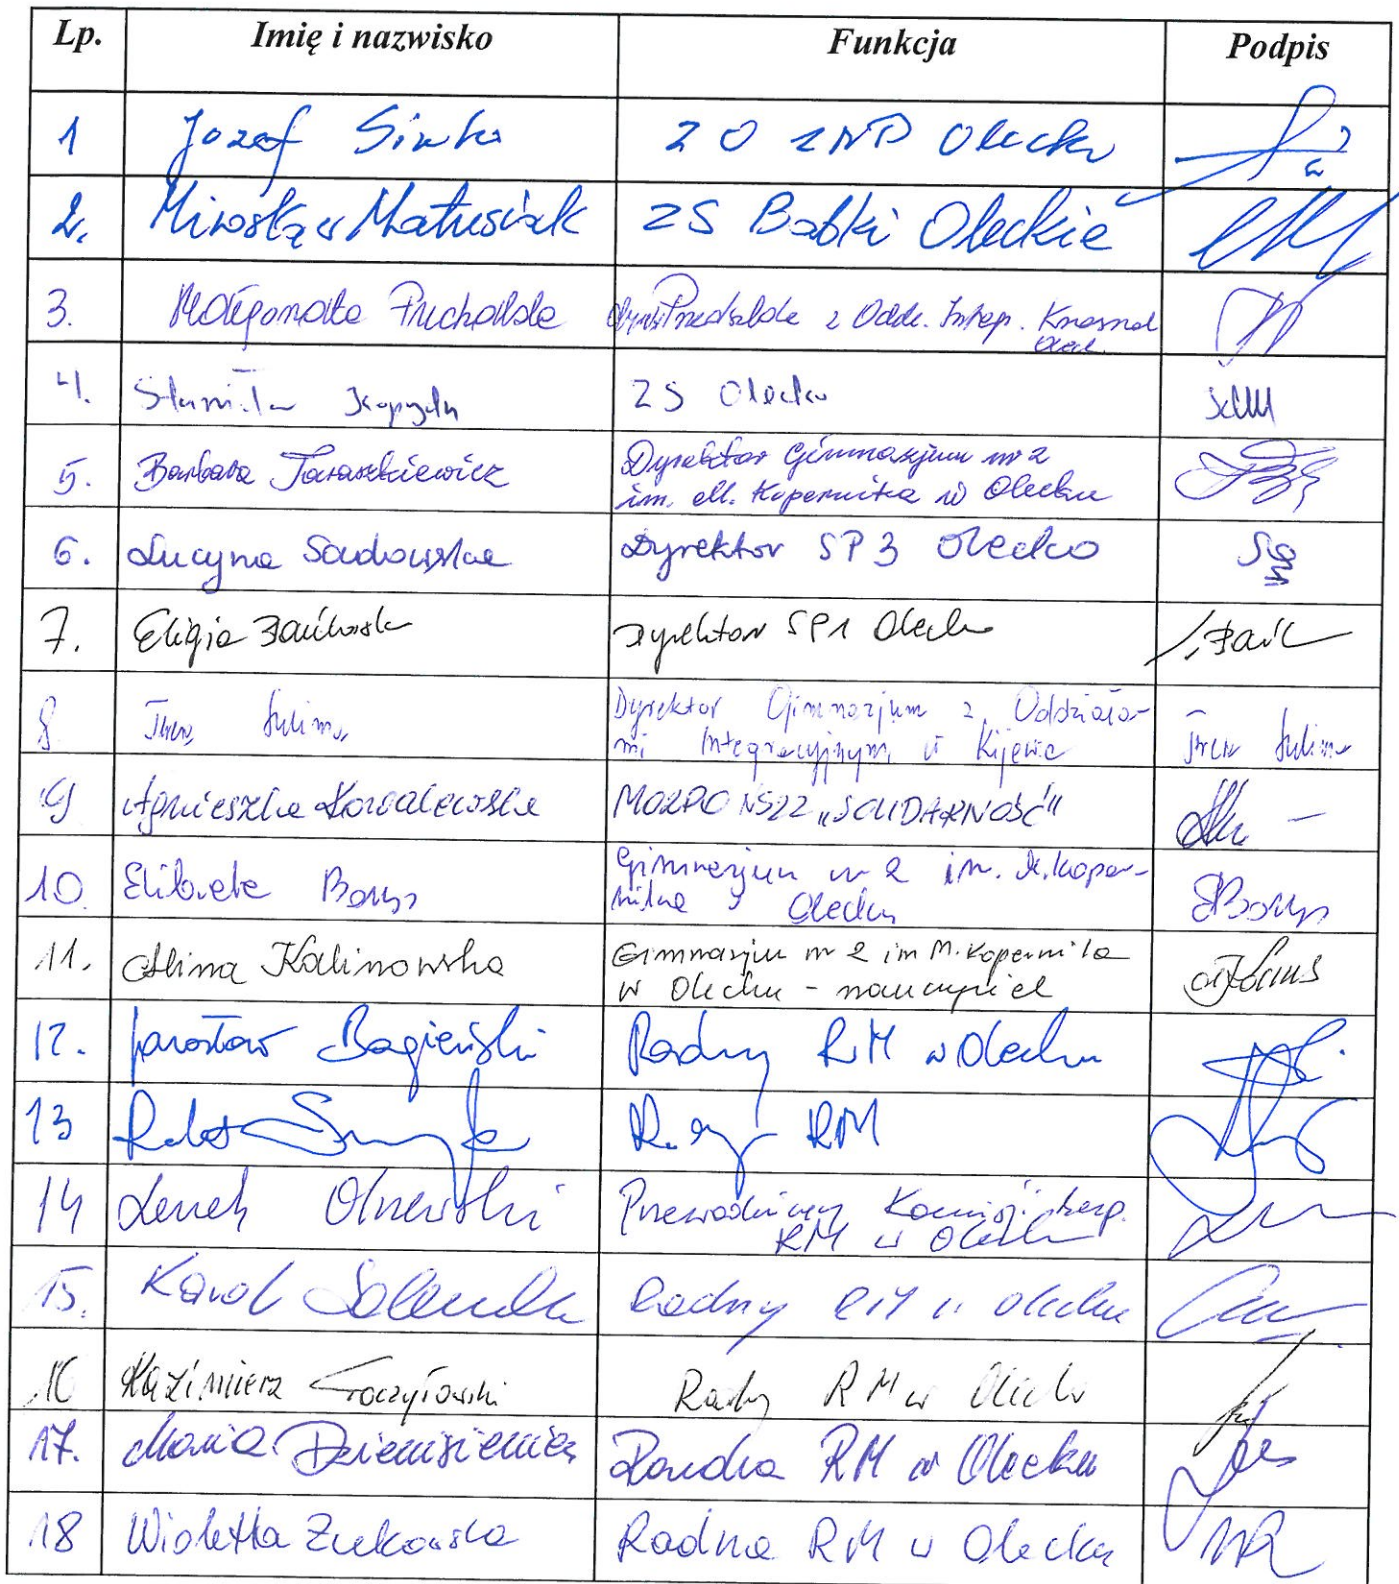 Lp. Imię i nazwisko Funkcja Podpis
1 Józef ZO ZNP Olecko
2. Mirosław Matusiak ZS Babki Oleckie
3. Małgorzata Puchalska
4. ZS Olecko
5. Barbara Taraszkiewicz Dyrektor Gimnazjum nr 2
im. M. Kopernika w Olecku
6. Lucyna Sadowska Dyrektor SP 3 Olecko
7. Eligia Bańkowska Dyrektor SP1 Olecko
8 Sulima Dyrektor Gimnazjum z Oddziała-
mi Integracyjnymi w Kijewie Sulima
9 Agnieszka Kowalewska MOZPO NSZZ „SOLIDARNOŚĆ"
10. Elżbieta Borys Gimnazjum nr 2 im. M. Koper-
nika w Olecku EBorys
11. Alina Kalinowska Gimnazjum nr 2 im M. Kopernika
w Olecku - nauczyciel
12. Jarosław Bagieński Radny RM w Olecku
13 Robert RM
14 Leszek Olszewski Przewodniczący Komisji
RM w Olecku
15. Karol Radny RM w Olecku
16 Kazimierz Radny RM w Olecku
17. Maria Dzienisiewicz Radna RM w Olecku
18 Wioletta Żukowska Radna RM w Olecku